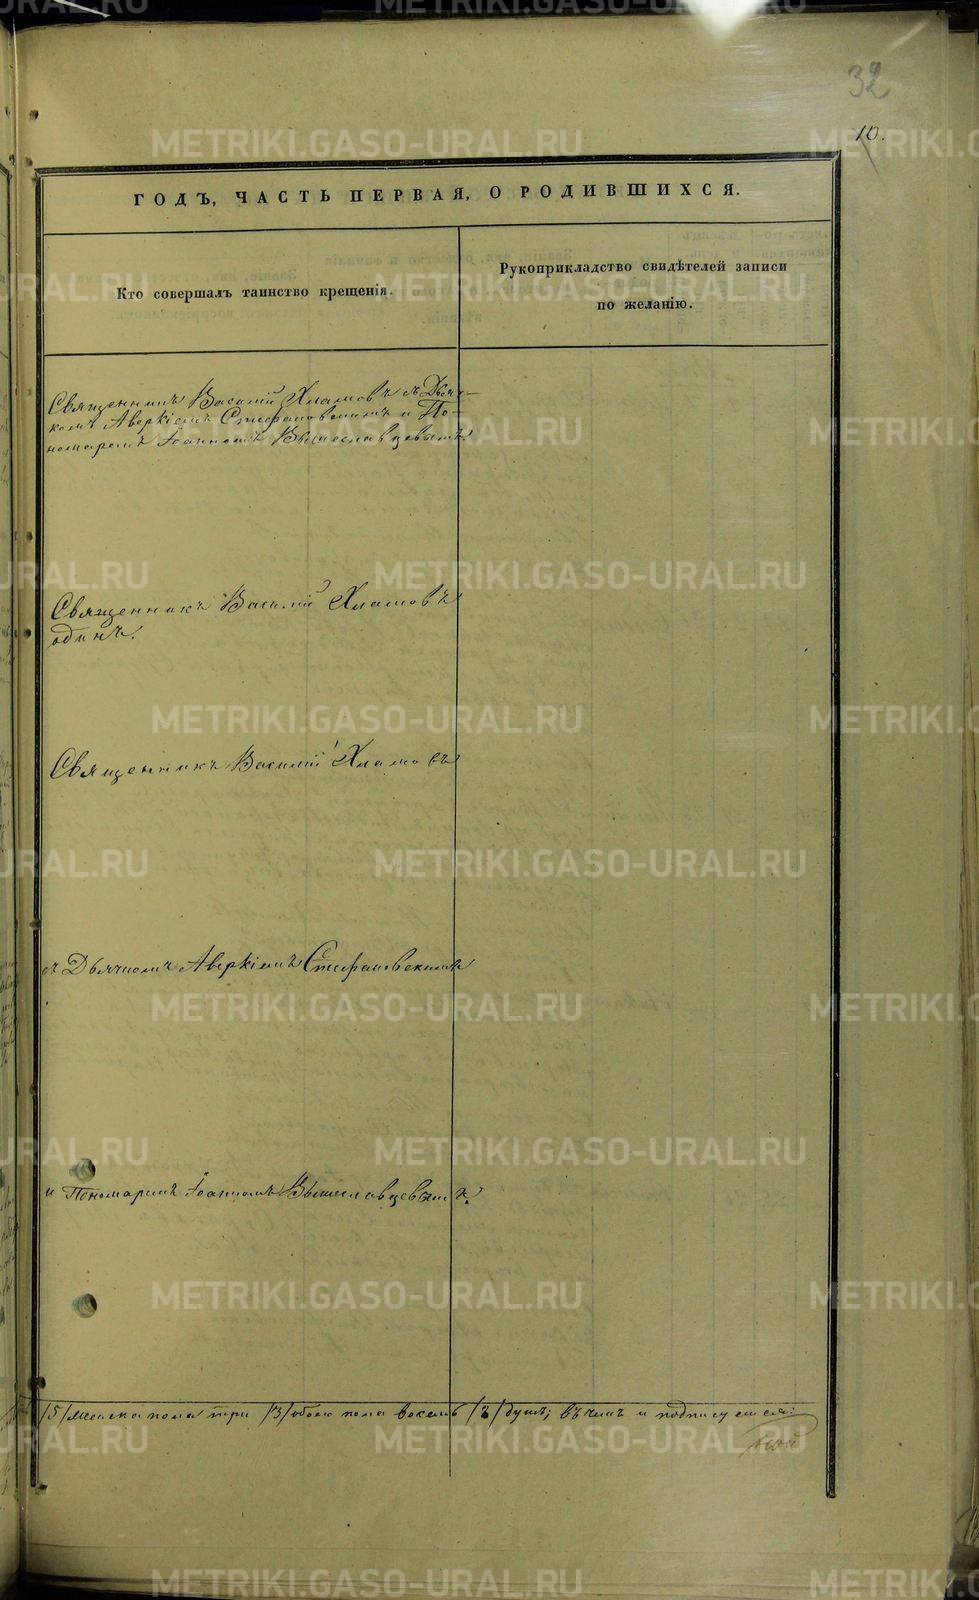 32
10.
ГОДЪ, ЧАСТЬ ПЕРВАЯ, О РОДИВШИХСЯ.
Кто совершалъ таинство крещенія.
Рукоприкладство свидѣтелей записи
по желанію.
Священникъ Василій Хламовъ съ Дьяч-
комъ Аверкіемъ Стефановскимъ и По-
номаремъ Іоанномъ Вышеславцевымъ
Священникъ Василій Хламовъ
одинъ.
Священникъ Василій Хламовъ
съ Дьячкомъ Аверкіемъ Стефановскимъ
и Пономаремъ Іоанномъ Вышеславцевымъ.
/5/ женска пола три /3/ обоего пола восемь /8/ душъ; въ чемъ и подписуемся:
METRIKI.GASO-URAL.RU